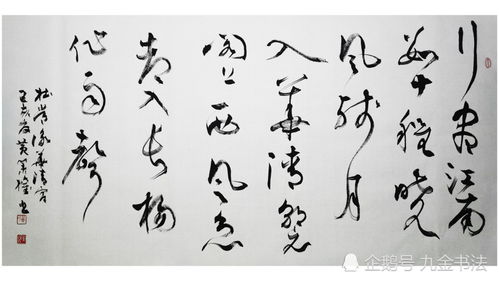 行尽江南
数十程晓
风残月
入華清朝元
阁上西风急
都入长杨
作雨聲
杜常 華清宫
黄 书
企鹅号 九金书法